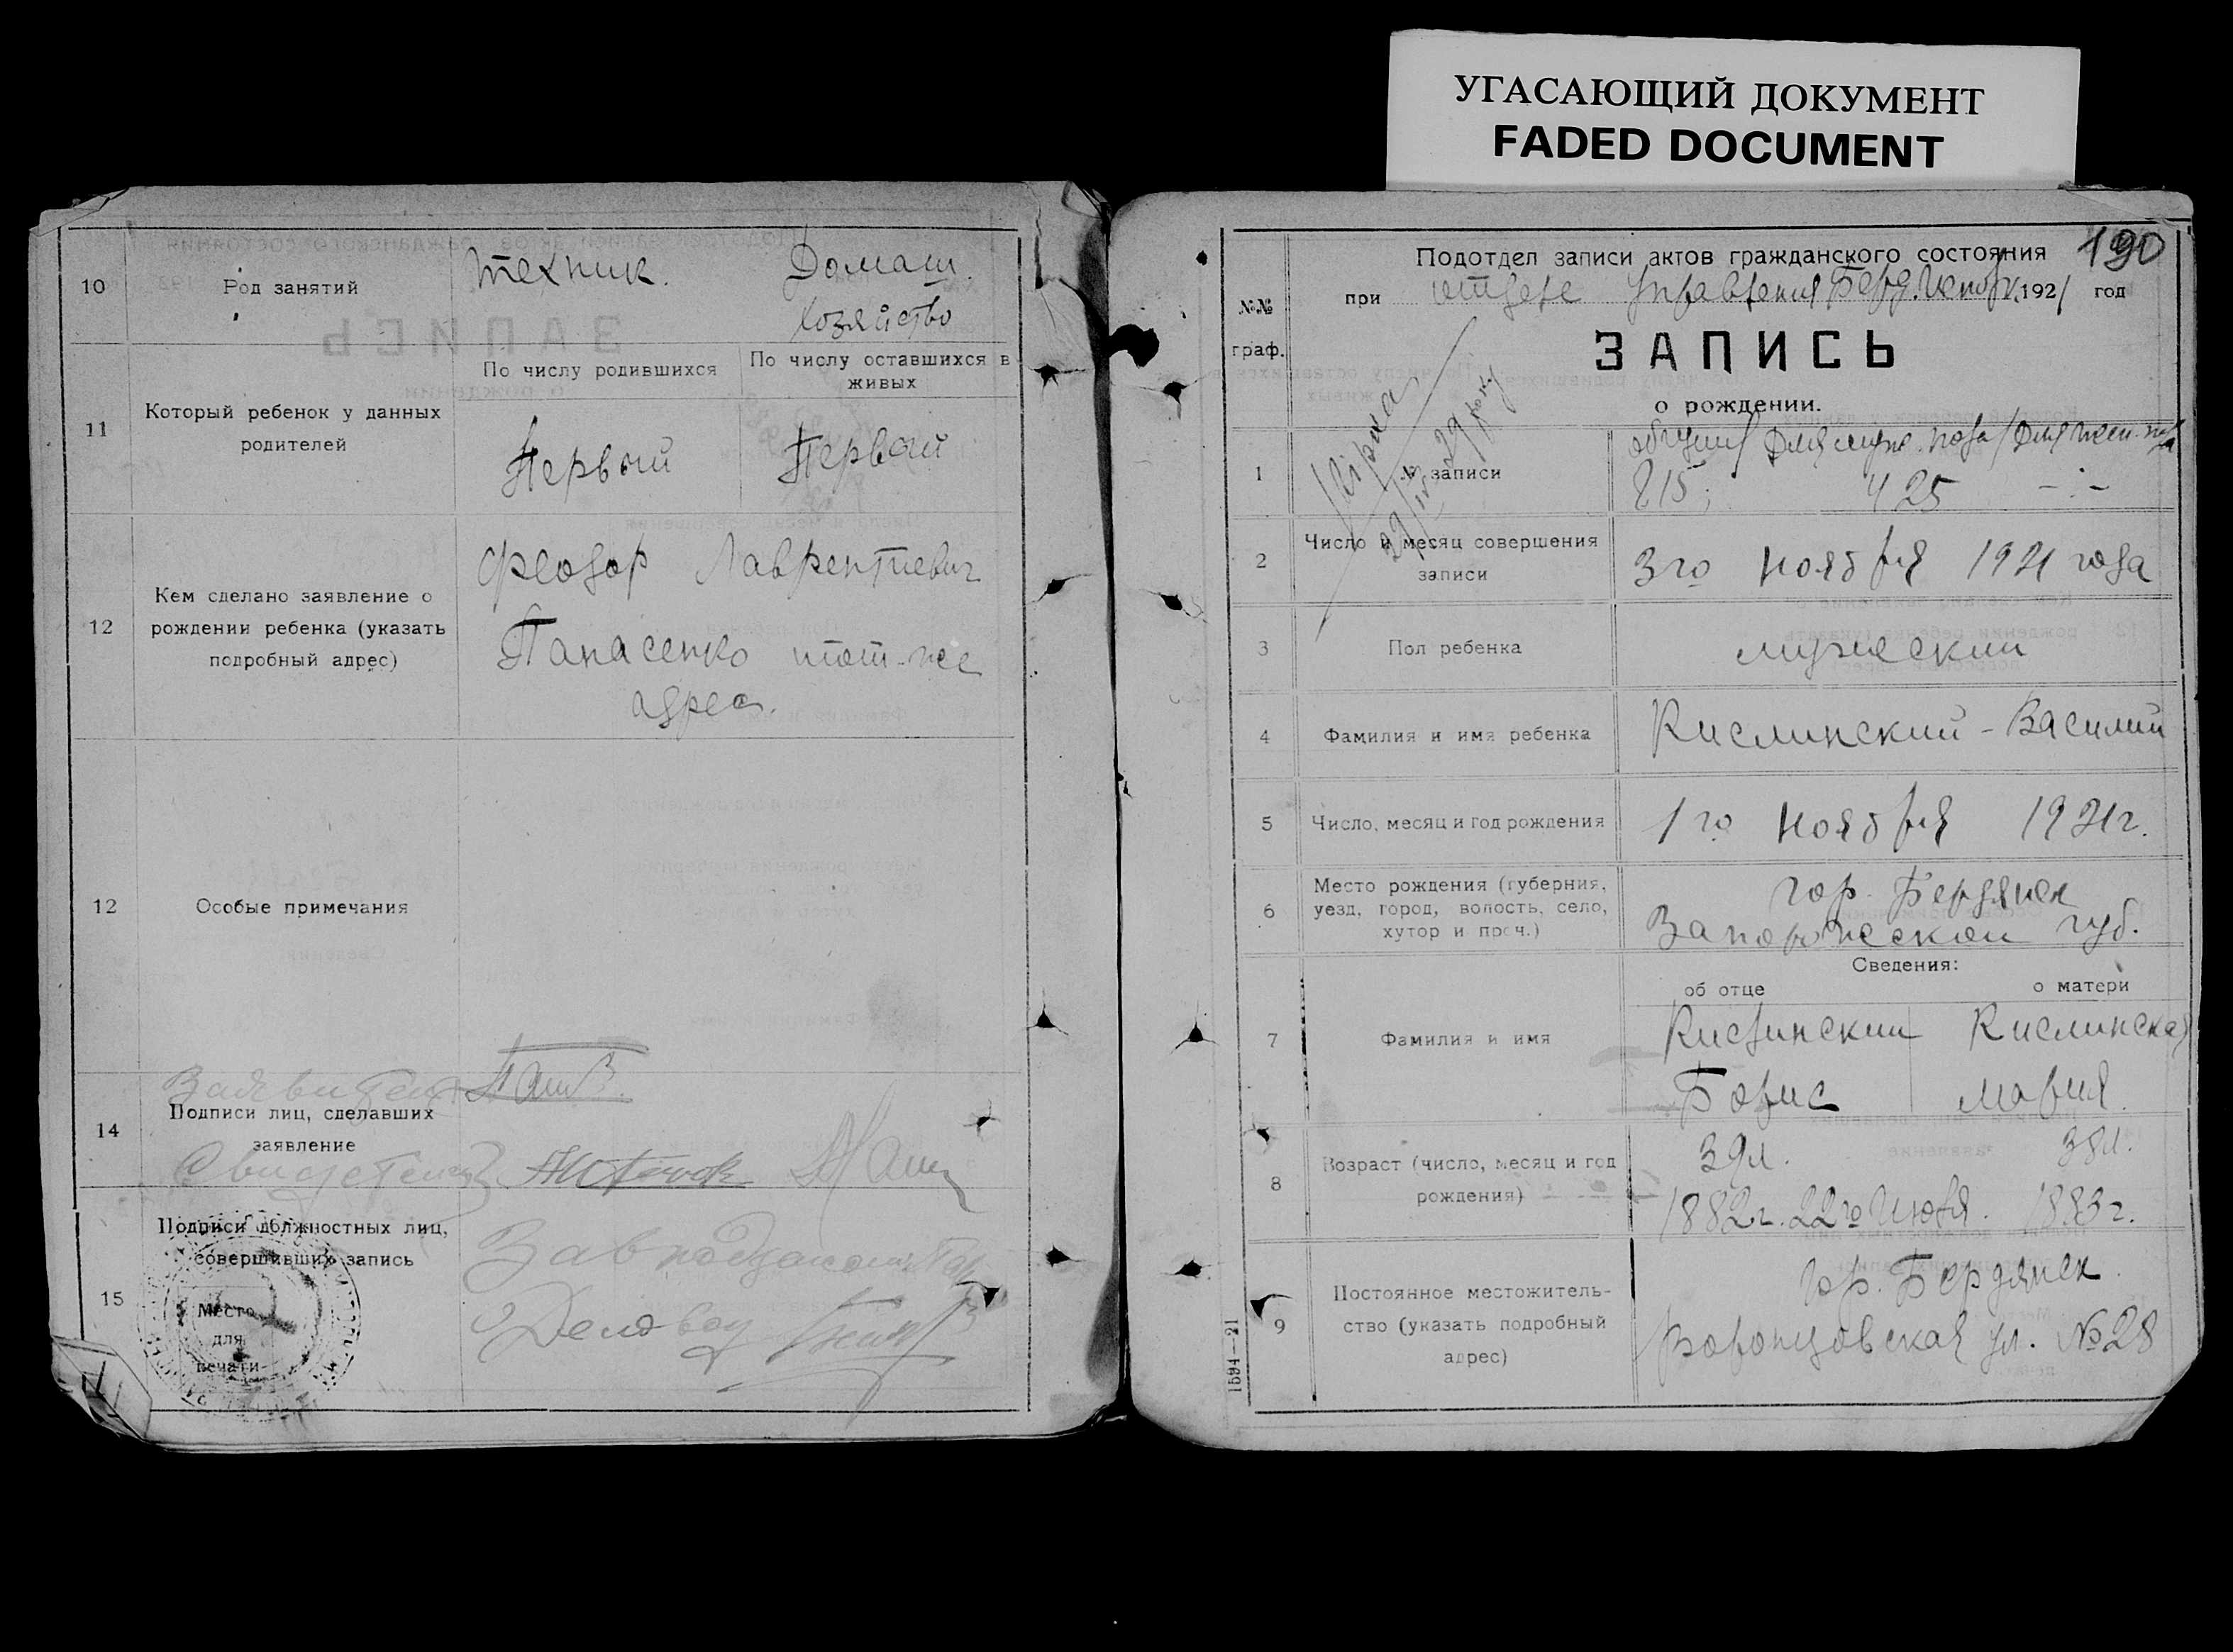 УГАСАЮЩИЙ ДОКУМЕНТ
FADED DOCUMENT
10
Род занятий
техник.
Домаш.
хозяйство
11
Который ребенок у данных
родителей
По числу родившихся
По числу оставшихся в
живых
Первый
Первый
12
Кем сделано заявление о
рождении ребенка (указать
подробный адрес)
Феодор Лаврентиевич
Панасенко тот-же
адрес.
12
Особые примечания
Заявитель
14
Подписи лиц, сделавших
заявление
Свидетели
15
Подписи должностных лиц,
совершивших запись
Место
для
печати
Зав
Делов
190
Подотдел записи актов гражданского состояния
№№
граф.
при отделе Управления Берд. Исполк. 1921 год
ЗАПИСЬ
о рождении.
1
№ записи
общий / Для муж. пола / Для жен. пола
815; 425 -:-
29 року
2
Число и месяц совершения
записи
3го ноября 1921 года
3
Пол ребенка
мужеский
4
Фамилия и имя ребенка
Кислинский - Василий
5
Число, месяц и год рождения
1го ноября 1921г.
6
Место рождения (губерния,
уезд, город, волость, село,
хутор и проч.)
гор. Бердянск
Запорожской губ.
Сведения:
об отце
о матери
7
Фамилия и имя
Кислинский
Кислинская
Борис
Мария.
8
Возраст (число, месяц и год
рождения)
39л.
38л.
1882г. 22го Июля.
1883г.
9
Постоянное местожитель-
ство (указать подробный
адрес)
гор. Бердянск.
Воронцовская ул. №28
1594—21